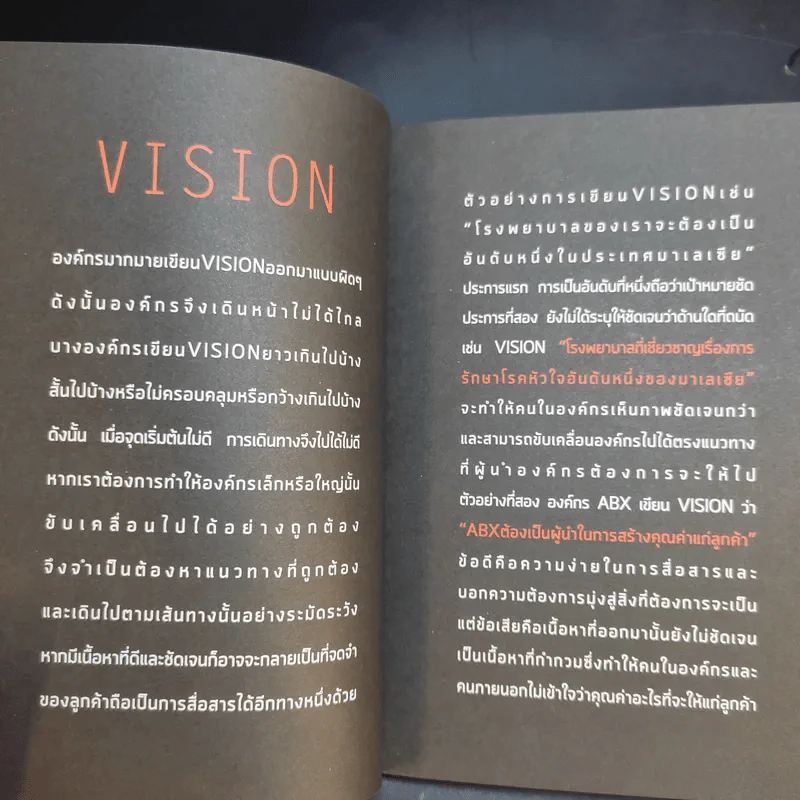 VISION
องค์กรมากมายเขียนVISIONออกมาแบบผิดๆ
ดังนั้นองค์กรจึงเดินหน้าไม่ได้ไกล
บางองค์กรเขียนVISIONยาวเกินไปบ้าง
สั้นไปบ้างหรือไม่ครอบคลุมหรือกว้างเกินไปบ้าง
ดังนั้น เมื่อจุดเริ่มต้นไม่ดี การเดินทางจึงไปได้ไม่ดี
หากเราต้องการทำให้องค์กรเล็กหรือใหญ่นั้น
ขับเคลื่อนไปได้อย่างถูกต้อง
จึงจำเป็นต้องหาแนวทางที่ถูกต้อง
และเดินไปตามเส้นทางนั้นอย่างระมัดระวัง
หากมีเนื้อหาที่ดีและชัดเจนก็อาจจะกลายเป็นที่จดจำ
ของลูกค้าถือเป็นการสื่อสารได้อีกทางหนึ่งด้วย
ตัวอย่างการเขียนVISIONเช่น
"โรงพยาบาลของเราจะต้องเป็น
อันดับหนึ่งในประเทศมาเลเซีย"
ประการแรก การเป็นอันดับที่หนึ่งถือว่าเป้าหมายชัด
ประการที่สอง ยังไม่ได้ระบุให้ชัดเจนว่าด้านใดที่ถนัด
เช่น VISION "โรงพยาบาลที่เชี่ยวชาญเรื่องการ
รักษาโรคหัวใจอันดับหนึ่งของมาเลเซีย"
จะทำให้คนในองค์กรเห็นภาพชัดเจนกว่า
และสามารถขับเคลื่อนองค์กรไปได้ตรงแนวทาง
ที่ผู้นำองค์กรต้องการจะให้ไป
ตัวอย่างที่สอง องค์กร ABX เขียน VISION ว่า
"ABXต้องเป็นผู้นำในการสร้างคุณค่าแก่ลูกค้า"
ข้อดีคือความง่ายในการสื่อสารและ
บอกความต้องการมุ่งสู่สิ่งที่ต้องการจะเป็น
แต่ข้อเสียคือเนื้อหาที่ออกมานั้นยังไม่ชัดเจน
เป็นเนื้อหาที่กำกวมซึ่งทำให้คนในองค์กรและ
คนภายนอกไม่เข้าใจว่าคุณค่าอะไรที่จะให้แก่ลูกค้า